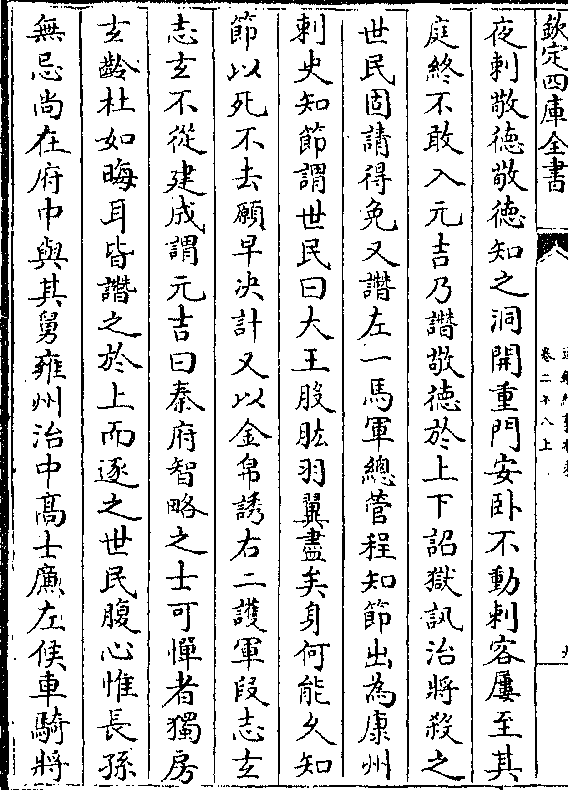 欽定四庫全書
卷二十八上
夜刺敬徳敬徳知之洞開重門安卧不動刺客屢至其
庭終不敢入元吉乃譖敬徳於上下詔獄訊治將殺之
世民固請得免又譖左一馬軍總管程知節出為康州
刺史知節謂世民曰大王股肱羽翼盡矣身何能久知
節以死不去願早決計又以金帛誘右二護軍段志𤣥
志𤣥不從建成謂元吉曰秦府智略之士可憚者獨房
𤣥齡杜如晦耳皆譖之於上而逐之世民腹心惟長孫
無忌尚在府中與其舅雍州治中髙士廉左候車騎將